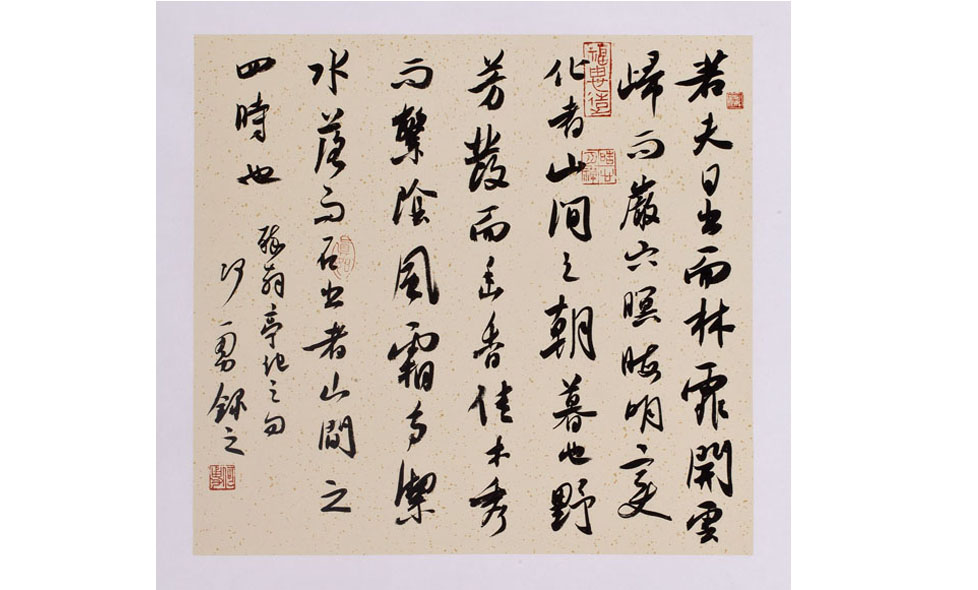 若夫日出而林霏開雲
歸而巖穴暝晦明變
化者山间之朝暮也野
芳發而幽香佳木秀
而繁陰風霜高潔
水落而石出者山間之
四時也
醉翁亭记之句
勇錄之